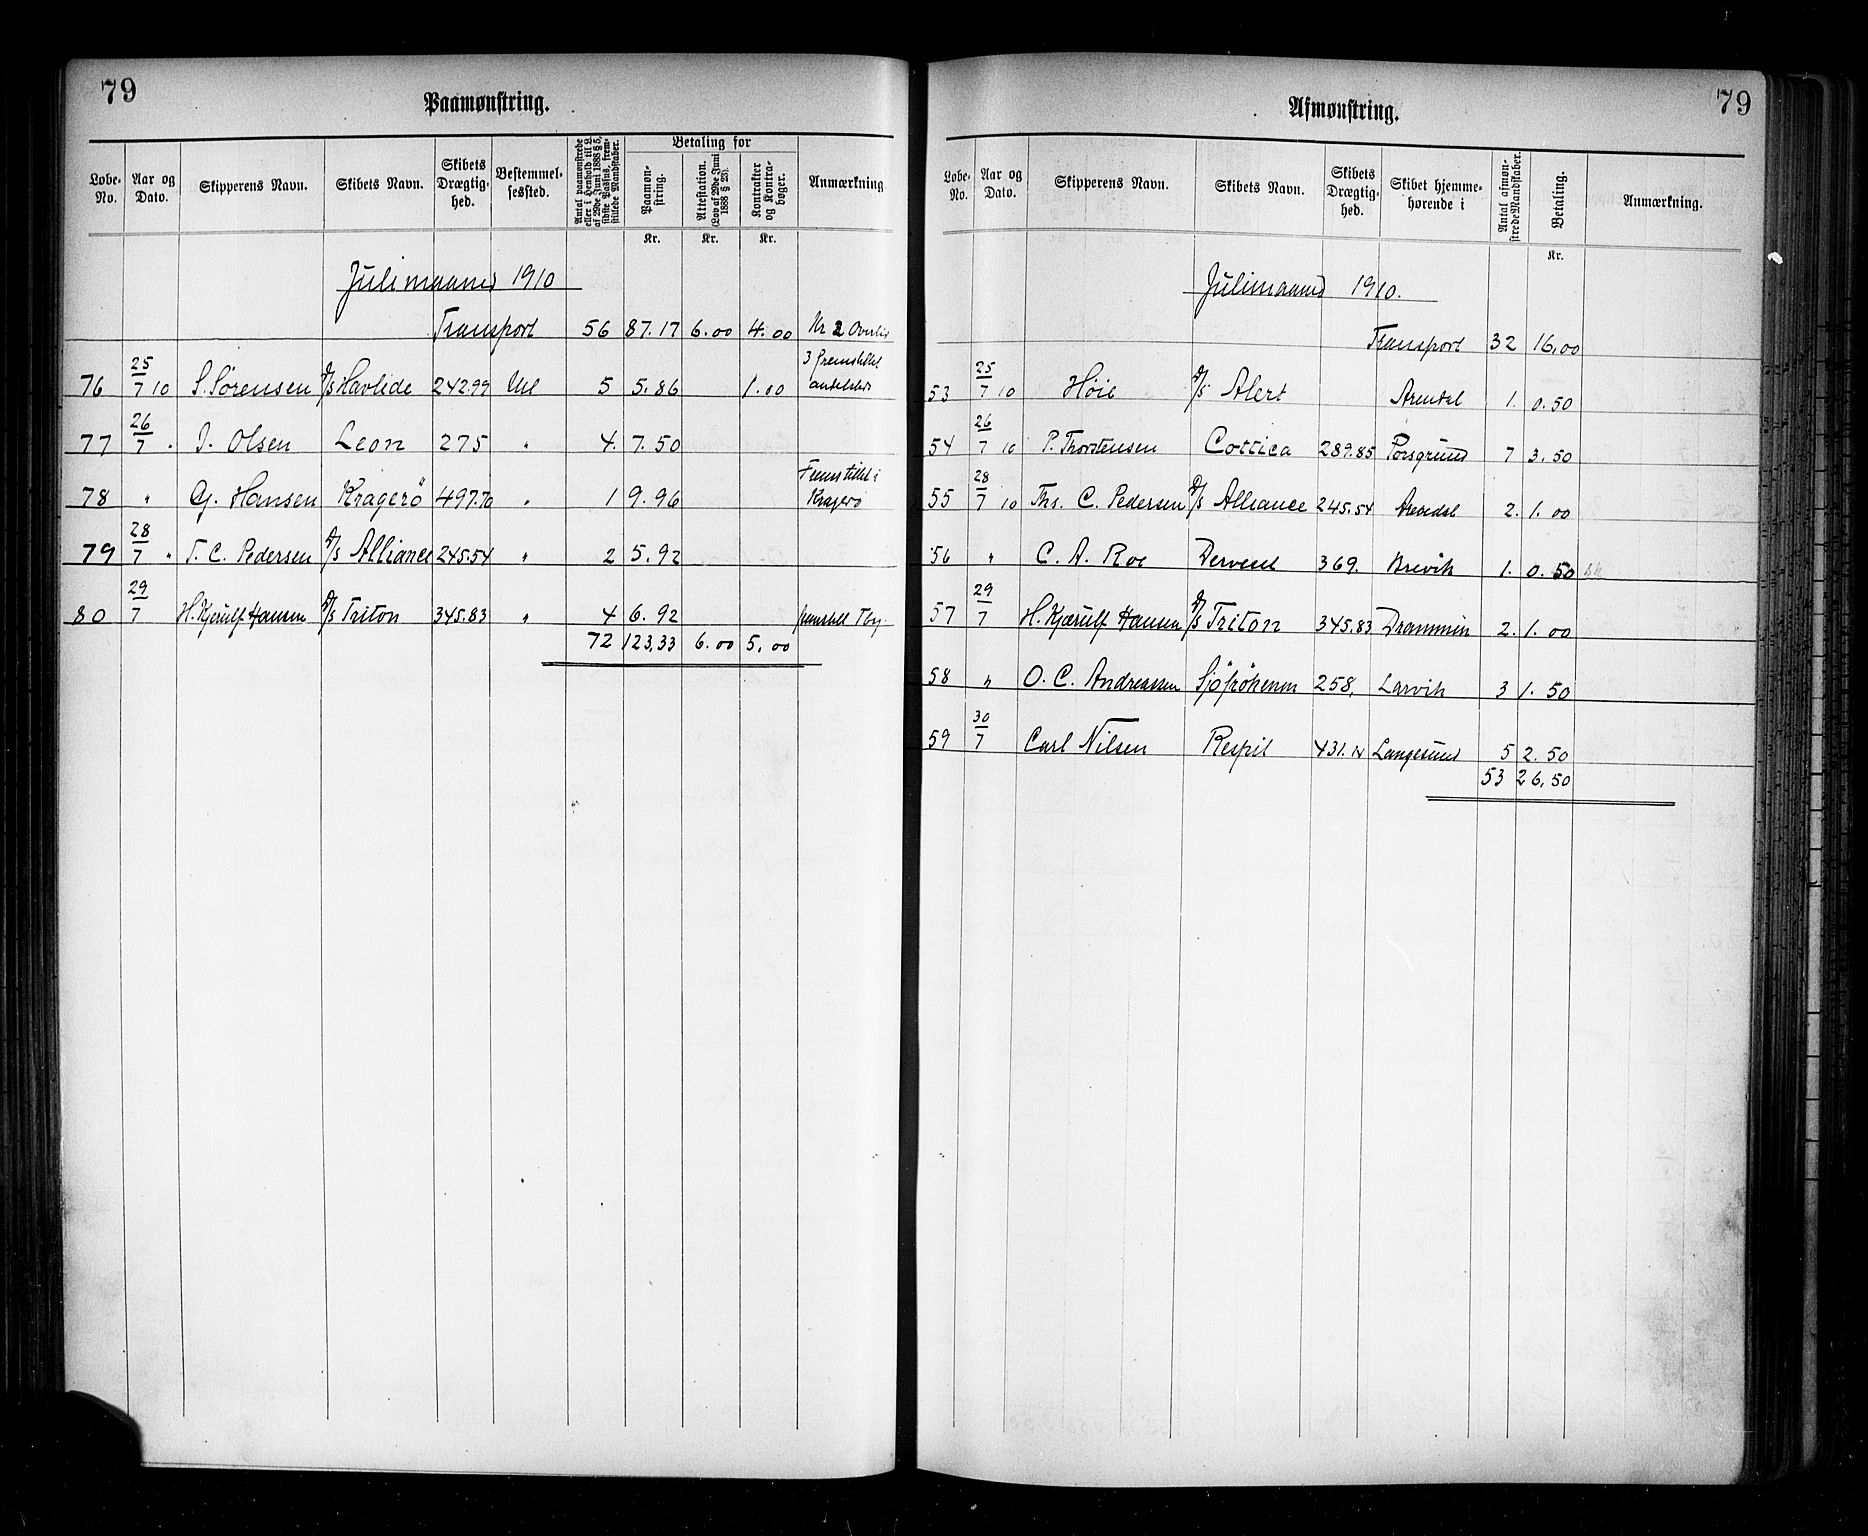 79
Paamønstring.
Løbe-No. | Aar og Dato. | Skipperens Navn. | Skibets Navn. | Skibets Drægtig-hed. | Bestemmel-sessted. | Antal paamønstrede eller i Henhold til L. af 29de Juni 1888 § 5, sidste Passus, frem-stillede Mandskaber. | Betaling for | Anmærkning
Paamøn-string. | Attestation. (Lov af 29de Juni 1888 § 28). | Kontrakter og Kontra-bøger.
Kr. | Kr. | Kr.
Julimaaned 1910
Transport 56 87.17 6.00 4.00 Kr 2
76 25/7 10 S. Sørensen D/S Havlide 242.99 Udl 5 5.86 1.00 3
77 26/7 . J. Olsen Leon 275 " 4. 7.50
78 " G. Hansen Kragerö 497.70 " 1 9.96 Fremstillet i Kragerø
79 28/7 " T. C. Pedersen D/S Alliance 245.54 " 2 5.92
80 29/7 H. Kjerulf Hansen D/S Triton 345.83 " 4 6.92
72 123,33 6.00 5,00
79
Afmønstring.
Løbe-No. | Aar og Dato. | Skipperens Navn. | Skibets Navn. | Skibets Drægtig-hed. | Skibet hjemme-hørende i | Antal afmøn-strede Mandskaber. | Betaling. | Anmærkning.
Kr.
Julimaaned 1910.
Transport 32 16,00
53 25/7 10 Høie D/S Alert Arendal 1. 0.50
54 26/7 10 P. Thorstensen Cottica 289.85 Porsgrund 7 3.50
55 28/7 10 Ths. C. Pedersen D/S Alliance 245.54 Arendal 2. 1.00
56 " C. A. Roe 369. Brevik 1. 0.50
57 29/7 H. Kjærulf Hansen D/S Triton 345.83 Drammen 2. 1.00
58 " O. C. Andreassen 258, Larvik 3 1.50
59 30/7 Carl Nilsen Respit 431.14 Langesund 5 2.50
53 26,50